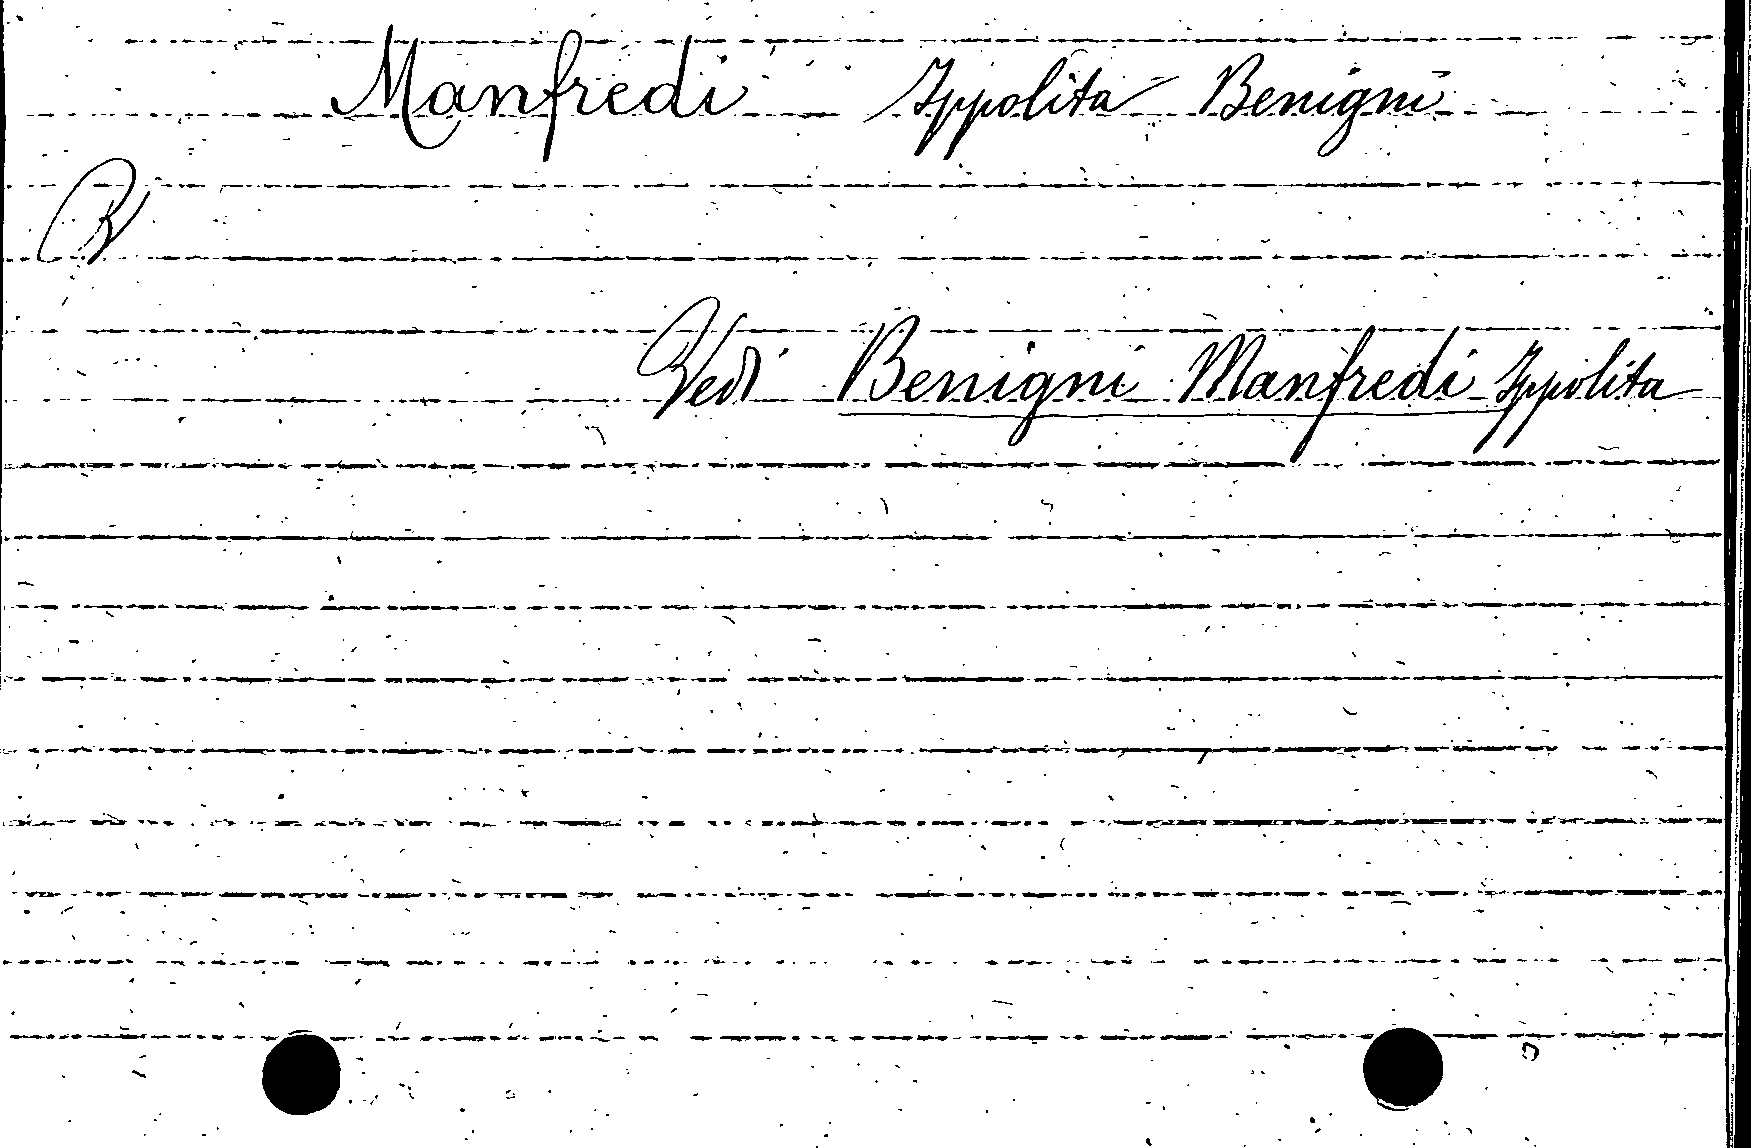 Manfredi Ippolita Benigni
Vedi Benigni Manfredi Ippolita